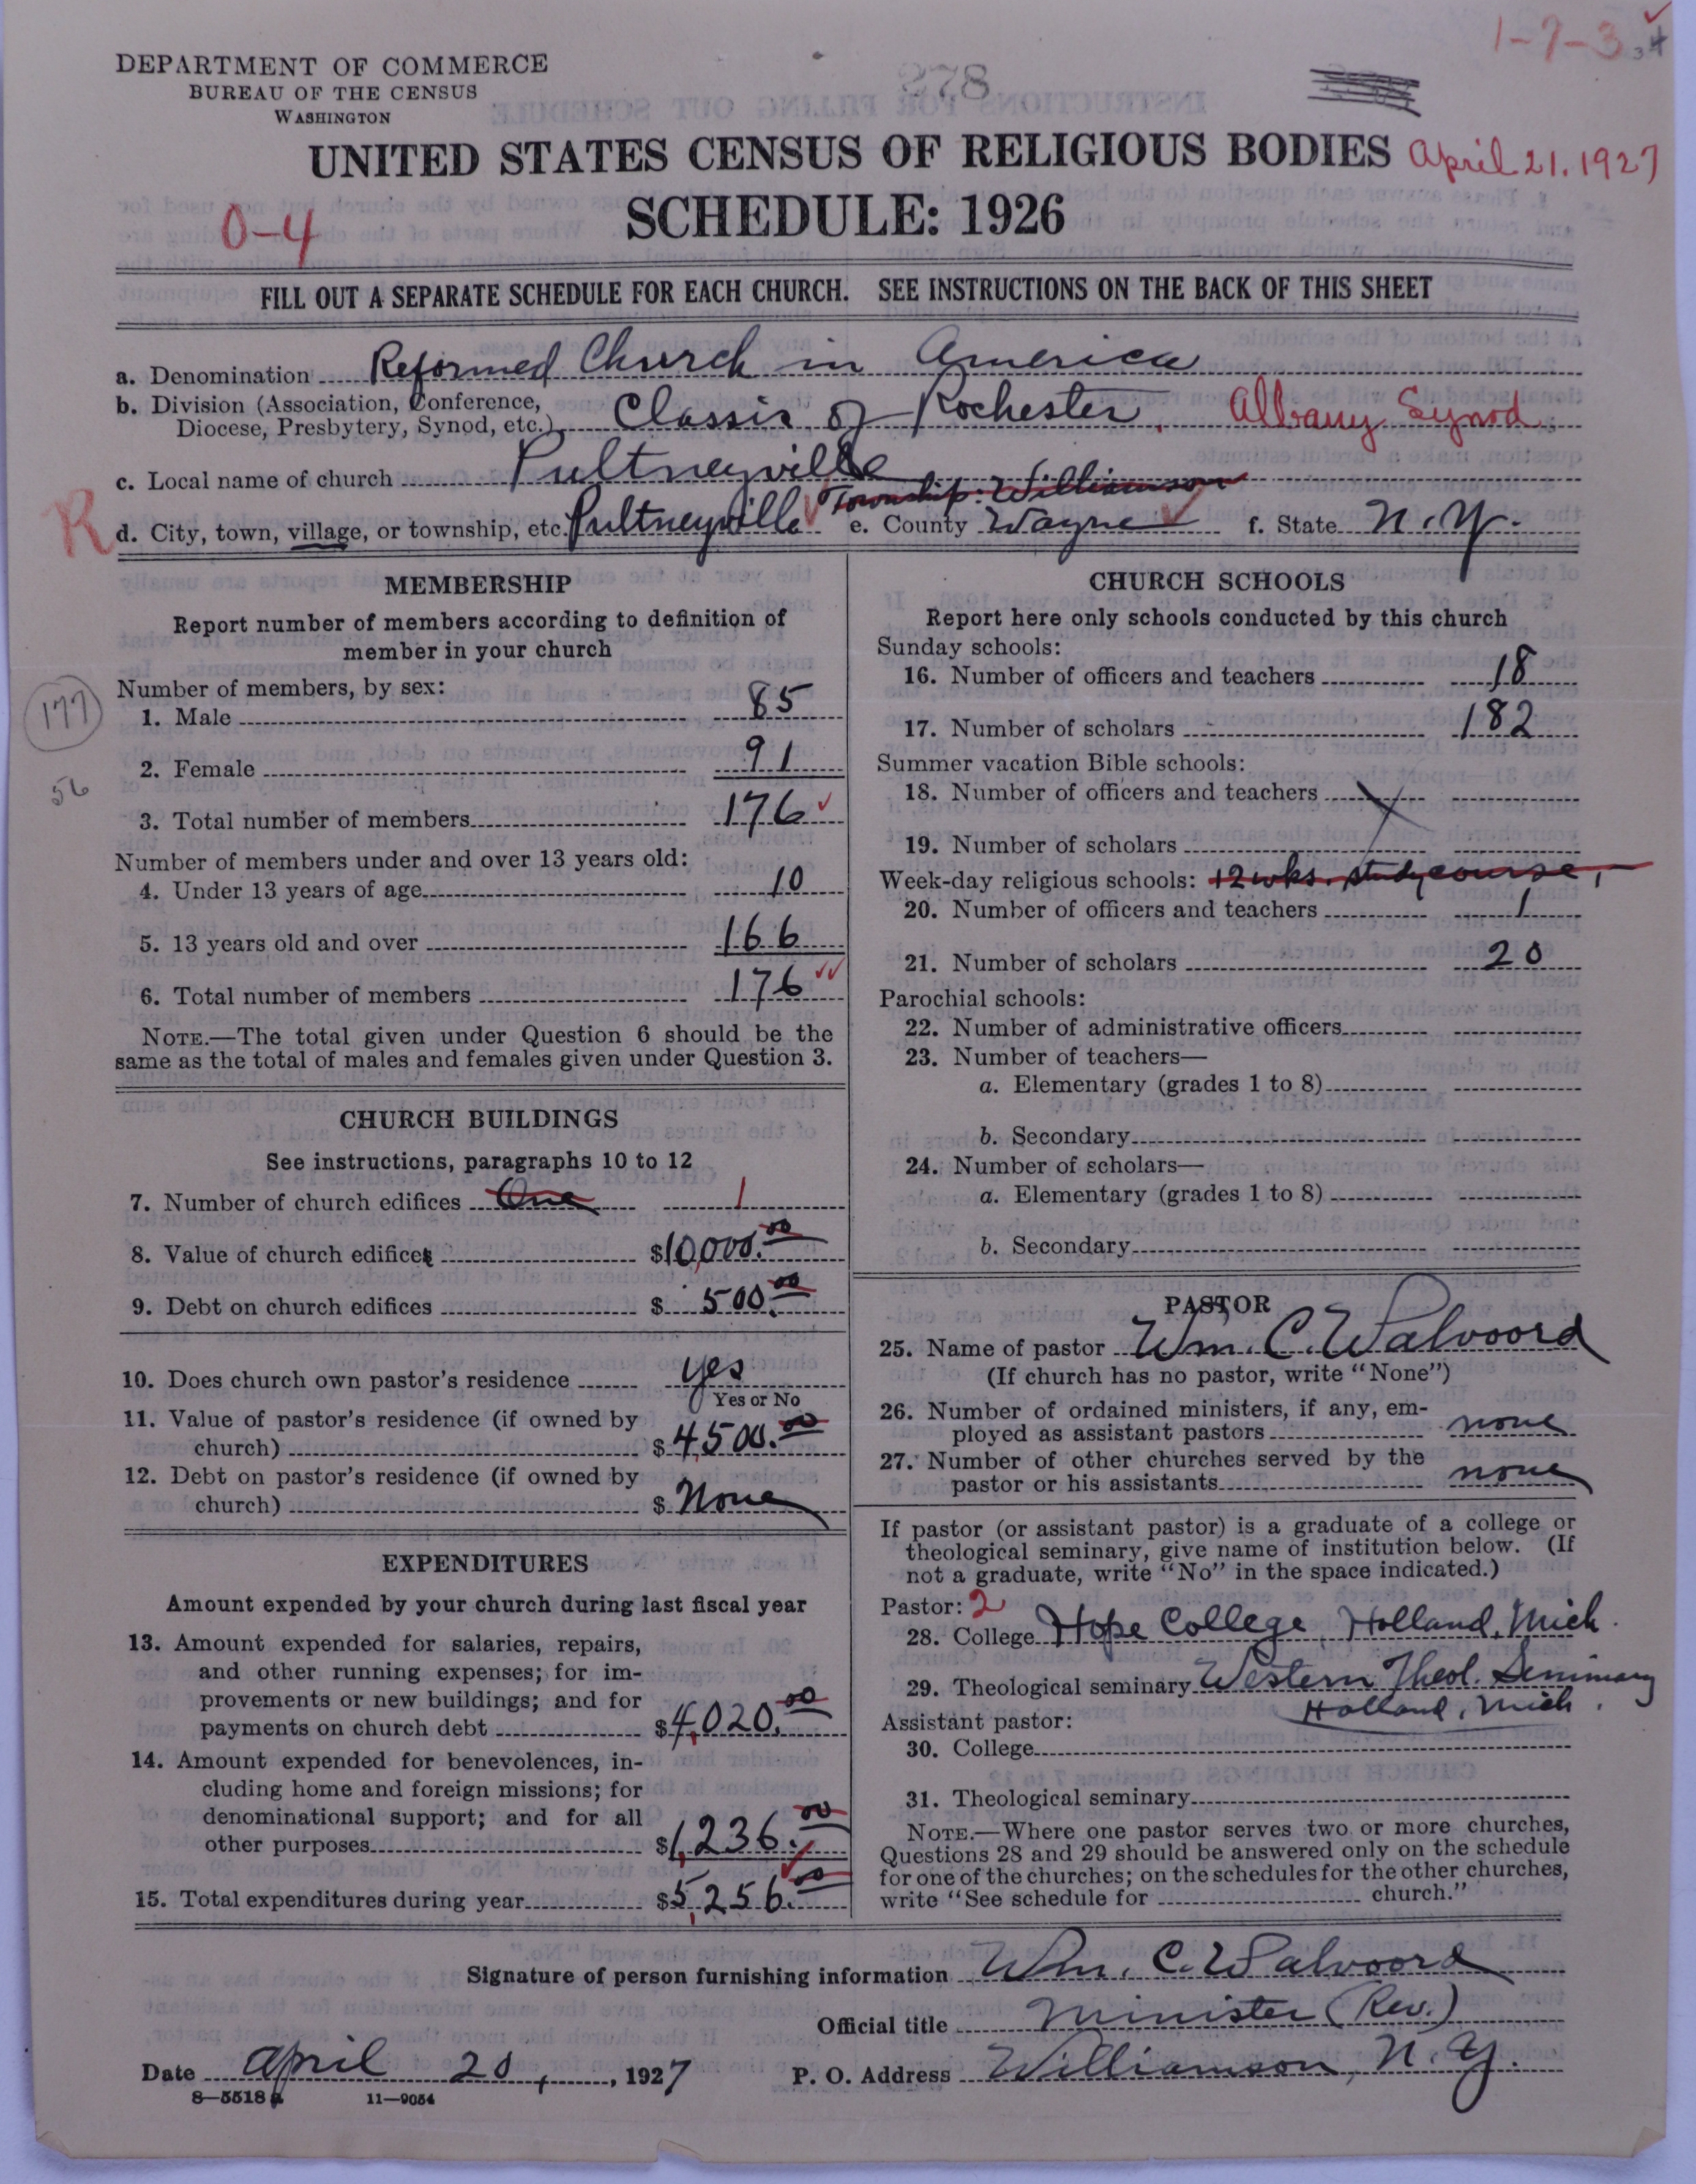 1-7-3 34
DEPARTMENT OF COMMERCE
BUREAU OF THE CENSUS
WASHINGTON
278
UNITED STATES CENSUS OF RELIGIOUS BODIES April 21, 1927
0-4
SCHEDULE: 1926
FILL OUT A SEPARATE SCHEDULE FOR EACH CHURCH. SEE INSTRUCTIONS ON THE BACK OF THIS SHEET
a. Denomination Reformed Church in America
b. Division (Association, Conference, Diocese, Presbytery, Synod, etc.) Classis of Rochester, Albany Synod
c. Local name of church Pultneyville
Township: Williamson
R
d. City, town, village, or township, etc. Pultneyville e. County Wayne f. State N.Y.
MEMBERSHIP
Report number of members according to definition of
member in your church
Number of members, by sex:
177
1. Male 85
56
2. Female 91
3. Total number of members 176
Number of members under and over 13 years old:
4. Under 13 years of age 10
5. 13 years old and over 166
6. Total number of members 176
NOTE.—The total given under Question 6 should be the
same as the total of males and females given under Question 3.
CHURCH BUILDINGS
See instructions, paragraphs 10 to 12
7. Number of church edifices One 1
8. Value of church edifices $10,000.00
9. Debt on church edifices $ 500.00
10. Does church own pastor's residence yes
Yes or No
11. Value of pastor's residence (if owned by
church) $4,500.00
12. Debt on pastor's residence (if owned by
church) $ None
EXPENDITURES
Amount expended by your church during last fiscal year
13. Amount expended for salaries, repairs,
and other running expenses; for im-
provements or new buildings; and for
payments on church debt $4,020.00
14. Amount expended for benevolences, in-
cluding home and foreign missions; for
denominational support; and for all
other purposes $1,236.00
15. Total expenditures during year $5,256.00
CHURCH SCHOOLS
Report here only schools conducted by this church
Sunday schools:
16. Number of officers and teachers 18
17. Number of scholars 182
Summer vacation Bible schools:
18. Number of officers and teachers
19. Number of scholars
Week-day religious schools: 12 wks. study course,
20. Number of officers and teachers 1
21. Number of scholars 20
Parochial schools:
22. Number of administrative officers
23. Number of teachers—
a. Elementary (grades 1 to 8)
b. Secondary
24. Number of scholars—
a. Elementary (grades 1 to 8)
b. Secondary
PASTOR
25. Name of pastor Wm. C. Walvoord
(If church has no pastor, write "None")
26. Number of ordained ministers, if any, em-
ployed as assistant pastors none
27. Number of other churches served by the
pastor or his assistants none
If pastor (or assistant pastor) is a graduate of a college or
theological seminary, give name of institution below. (If
not a graduate, write "No" in the space indicated.)
Pastor: 2
28. College Hope College, Holland, Mich.
29. Theological seminary Western Theol. Seminary
Holland, Mich.
Assistant pastor:
30. College
31. Theological seminary
NOTE.—Where one pastor serves two or more churches,
Questions 28 and 29 should be answered only on the schedule
for one of the churches; on the schedules for the other churches,
write "See schedule for church."
Signature of person furnishing information Wm. C. Walvoord
Official title Minister (Rev.)
Date April 20, 1927 P. O. Address Williamson, N.Y.
8-5518a 11-9054